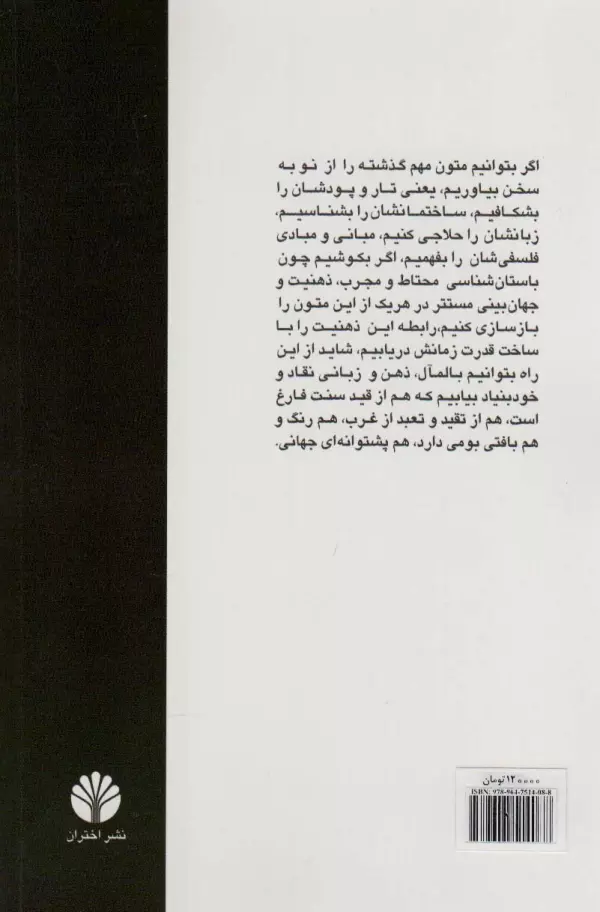 اگر بتوانیم متون مهم گذشته را از نو به
سخن بیاوریم، یعنی تار و پودشان را
بشکافیم، ساختمانشان را بشناسیم،
زبانشان را حلاجی کنیم، مبانی و مبادی
فلسفی‌شان را بفهمیم، اگر بکوشیم چون
باستان‌شناسی محتاط و مجرب، ذهنیت و
جهان‌بینی مستتر در هریک از این متون را
بازسازی کنیم،رابطه این ذهنیت را با
ساخت قدرت زمانش دریابیم، شاید از این
راه بتوانیم بالمآل، ذهن و زبانی نقاد و
خودبنیاد بیابیم که هم از قید سنت فارغ
است، هم از تقید و تعبد از غرب، هم رنگ و
هم بافتی بومی دارد، هم پشتوانه‌ای جهانی.
۱۲۰۰۰۰ تومان
ISBN: 978-964-7514-98-8
نشر اختران